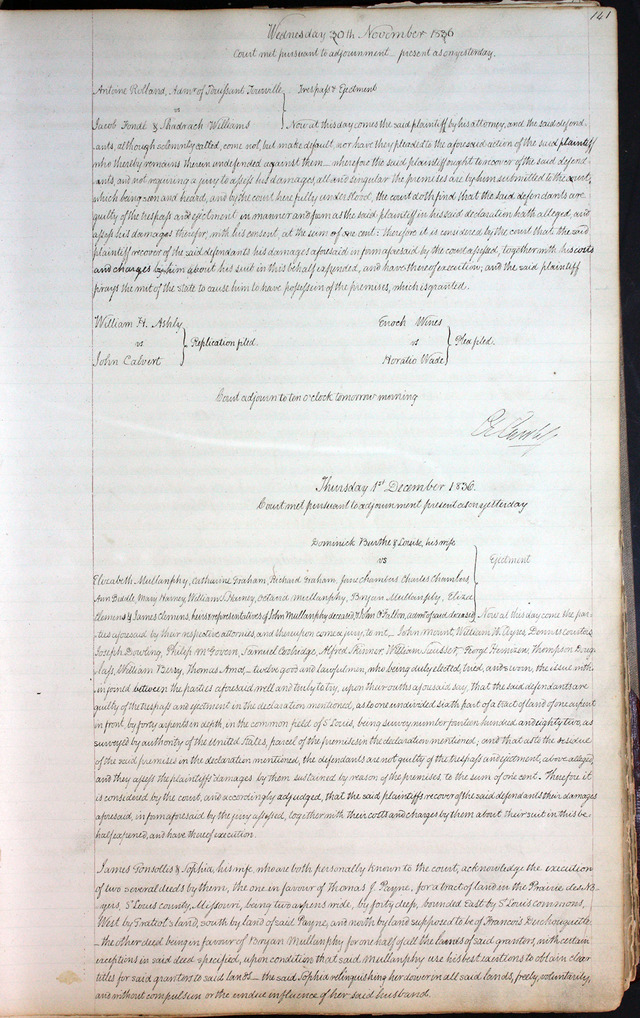 141
Wednesday 30th November 1836
Court met pursuant to adjournment present as on yesterday.
Antoine Rutland, Admr. of Toussant Tourville } Trespass & Ejectment
vs
Jacob Fondé & Shadrach Williams Now at this day comes the said plaintiff by his attorney, and the said defend-
ants, although solemnly called, come not, but make default, nor have they pleaded to the aforesaid action of the said plaintiff
who thereby remains therein undefended against them wherefore the said plaintiff ought to recover of the said defend-
ants, and not requiring a jury to assess his damages, all and singular the premises are by him submitted to the court,
which being seen and heard, and by the court here fully understood, the court doth find that the said defendants are
guilty of the trespass and ejectment in manner and form as the said plaintiff in his said declaration hath alleged, and
assess his damages therefor, with his consent, at the sum of one cent: therefore it is considered by the court that the said
plaintiff recover of the said defendants his damages aforesaid in form aforesaid by the court assessed, together with his costs
and charges by him about his suit in this behalf expended, and have thereof execution; and the said plaintiff
prays the writ of the state to cause him to have possession of the premises, which is granted.
William H. Ashly
vs } Replication pled.
John Calvert
Enoch Wines
vs } Plea pled.
Horatio Wade
Court adjourn to ten o'clock tomorrow morning
Thursday 1st December 1836.
Court met pursuant to adjournment present as on yesterday
Dominick Burthe & Louise, his wife
vs } Ejectment
Elizabeth Mullanphy, Catharine Graham, Richard Graham, Jane Chambers Charles Chambers
Ann Biddle, Mary Harney, William S. Harney, Octavia Mullanphy, Bryan Mullanphy, Eliza
Clemens & James Clemens, heirs & representatives of John Mullanphy deceased & John O'Fallon, admr. of said deceased Now at this day come the par-
ties aforesaid by their respective attornies, and thereupon comes a jury, to wit, John Mount, William W. Ayres
Joseph Dowling, Philip McGovern, Samuel Coolridge, Alfred Skinner, William Sausser, George Hewison, Thompson Doug-
lass, William Berry, Thomas Amos, twelve good and lawful men, who being duly elected, tried, and sworn, the issue with-
in joined between the parties aforesaid well and truly to try, upon their oaths aforesaid say, that the said defendants are
guilty of the trespass and ejectment in the declaration mentioned, as to one undivided sixth part of a tract of land of one arpent
in front, by forty arpents in depth, in the common field of St Louis, being survey number fourteen hundred and eighty two, as
surveyed by authority of the United States, parcel of the premises in the declaration mentioned; and that as to the residue
of the said premises in the declaration mentioned, the defendants are not guilty of the trespass and ejectment, above alleged,
and they assess the plaintiffs damages by them sustained by reason of the premises, to the sum of one cent. Therefore it
is considered by the court, and accordingly adjudged, that the said plaintiffs recover of the said defendants their damages
aforesaid, in form aforesaid by the jury assessed, together with their costs and charges by them about their suit in this be-
half expended, and have thereof execution.
James Gonsollis & Sophia, his wife, who are both personally known to the court, acknowledge the execution
of two several deeds by them, the one in favour of Thomas J. Payne, for a tract of land in the Prairie des N-
gers, St Louis county, Missouri, being two arpens wide, by forty deep, bounded East by St Louis commons,
West by Gratiot's land, south by land of said Payne, and north by land supposed to be of Francois Derchouquette
the other deed being in favour of Bryan Mullanphy for one half of all the lands of said grantors, with certain
exceptions in said deed specified, upon condition that said Mullanphy use his best exertions to obtain clear
titles for said grantors to said lands the said Sophia relinquishing her dower in all said lands, freely, voluntarily,
and without compulsion or the undue influence of her said husband.